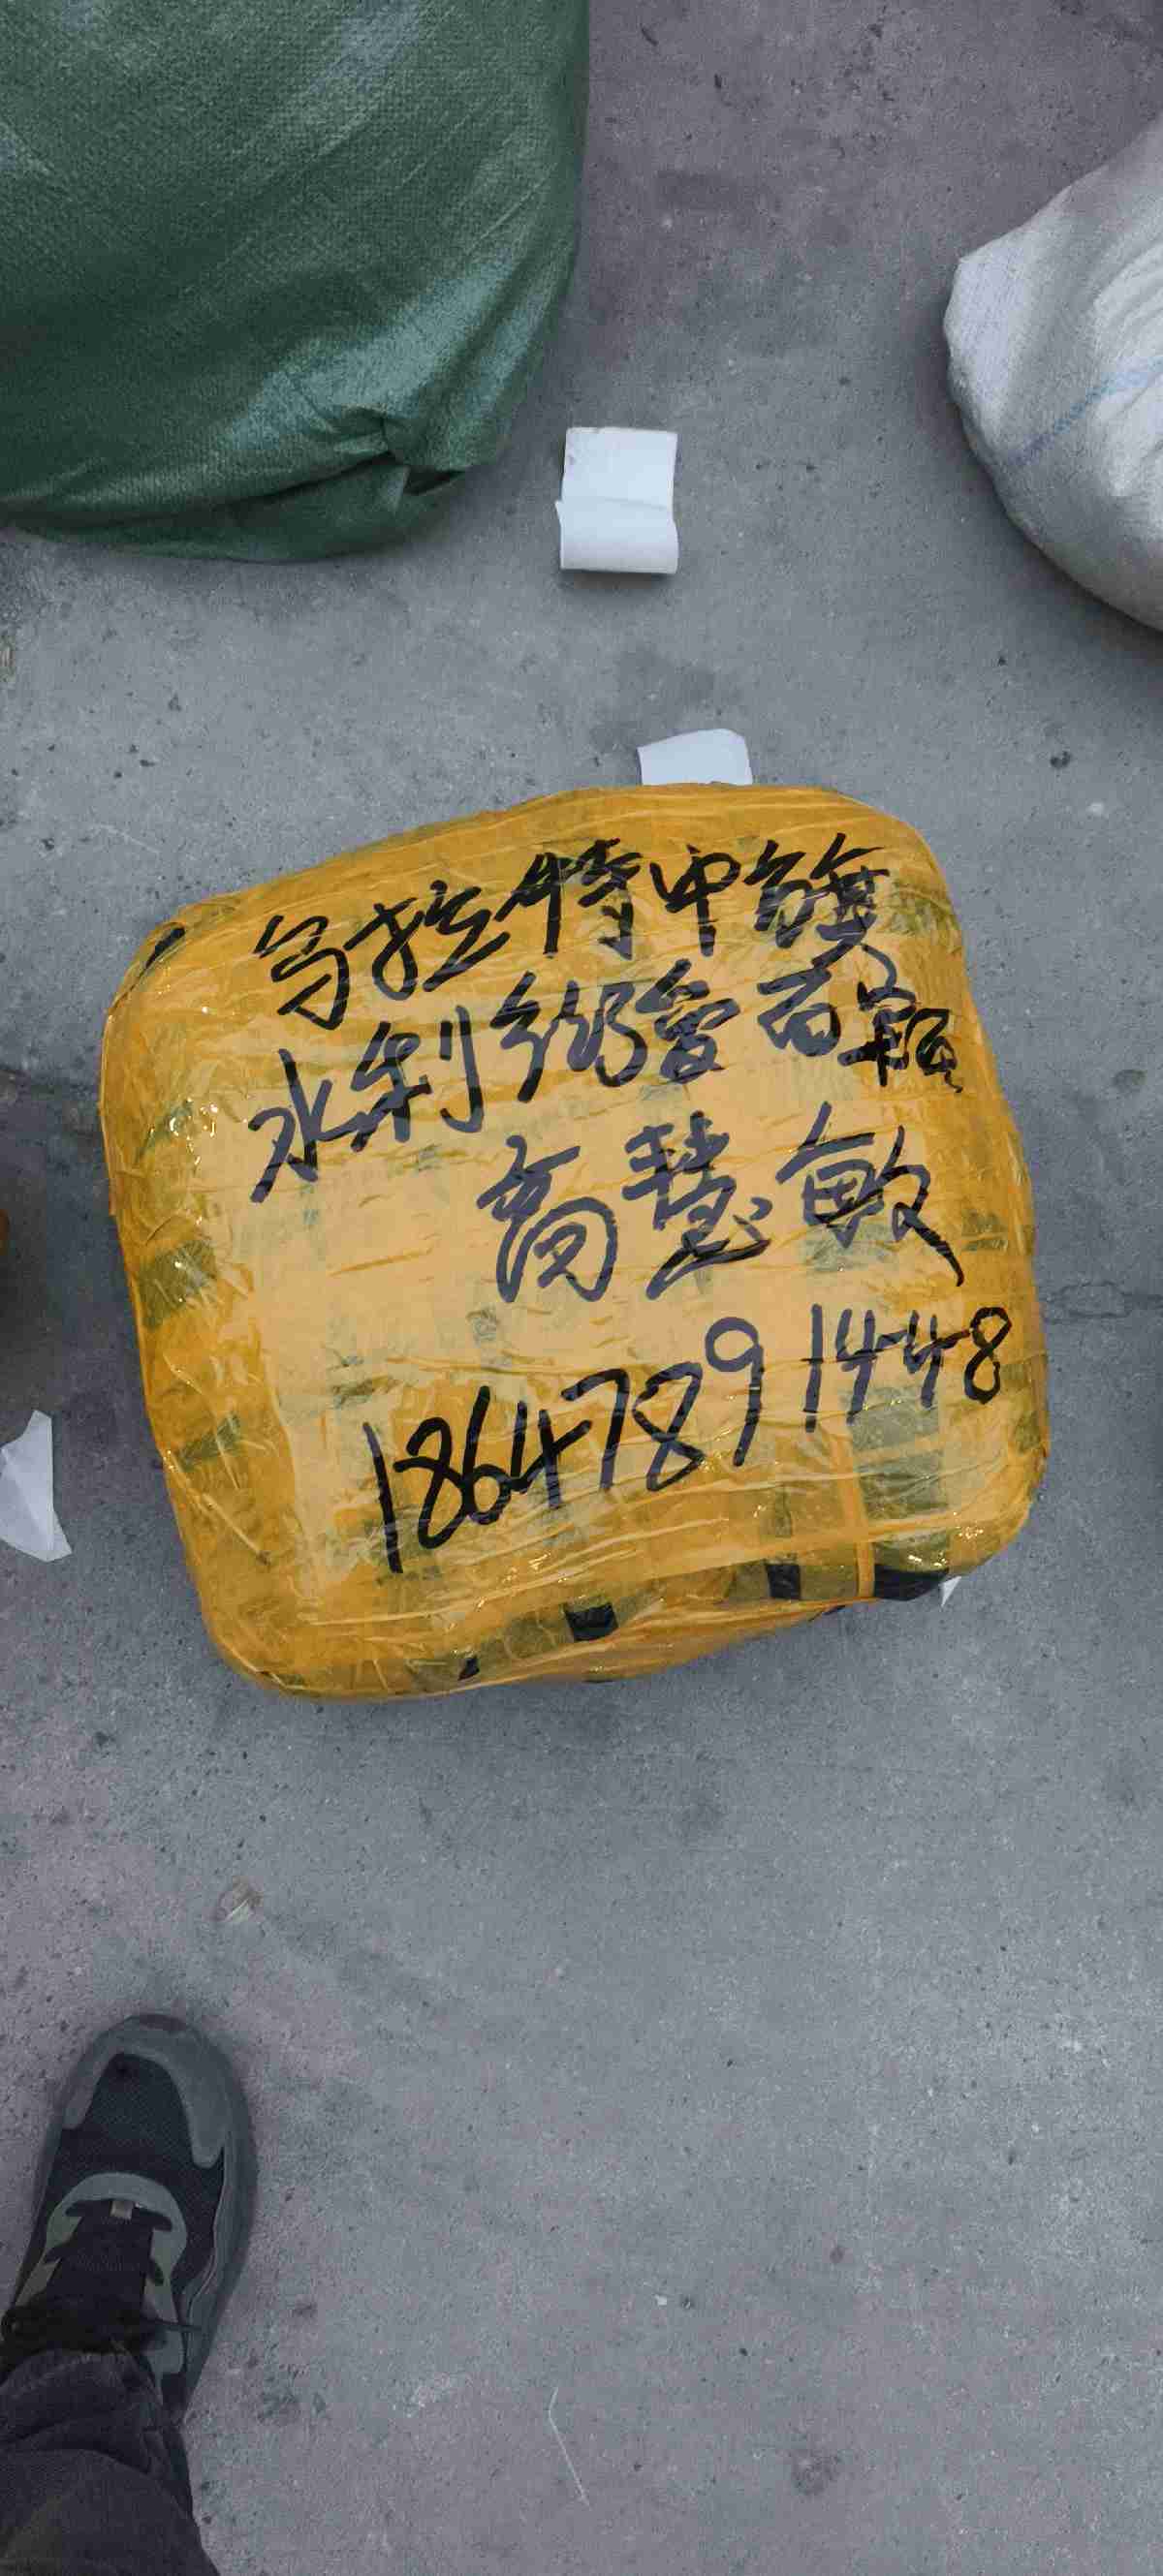 乌拉特中旗
水利
高慧敏
18647891448